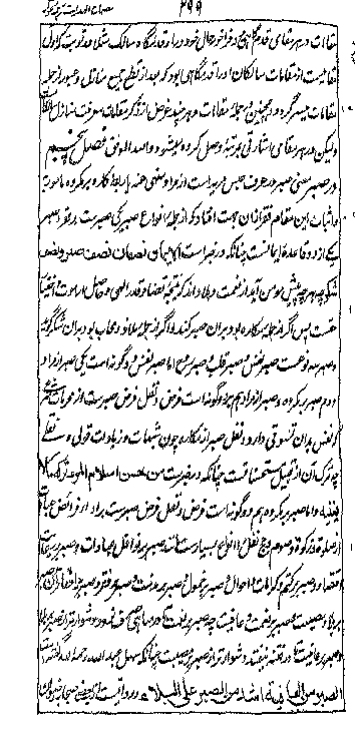 ۲۹۹
مقامات در هر مقامی قدم گاهی در خور حال خود دارد
مقامیست از مقامات سالکان بود که بعد از قطع جمیع منازل و عبور از جمله
مقامات میسر گردد و همچنین از جمله مقامات و هر چند غرض از ذکر مقامات معرفت منازل
ولیکن در هر مقامی اشارتی بمرتبه وصل کرده میشود و الله الموفق فصل پنجم
در صبر معنی صبر در عرف حبس مرید است از مراد منهی عنه یا ربط کاره بر مکروه مامور به
و اثبات این مقام فقر از آن جهت افتاد که از جمله انواع صبر یکی صبرست بر فقر و صبر
یکی از دو قاعده ایمانست چنانکه در خبر است الایمان نصفان نصف صبر و نصف
شکر چه هر چه پیش مومن آید از نعمت و بلا داند که نتیجه قضا و قدر الهی و حاصل ارادت و اختیار
حقست پس اگر از جمله مکاره بود بر آن صبر کند و اگر از جمله ملاذ و محاب بود بر آن شکر گوید
و صبر سه نوعست صبر نفس و صبر قلب و صبر روح اما صبر نفس دو گونه است یکی صبر از مراد
دوم صبر بر مکروه و صبر از مراد هم بر دو گونه است فرض و نفل فرض صبرست از محرمات شرعی
که نفس بدان تشوقی دارد و نفل صبر از مکاره چون شبهات و زیادات قولی و فعلی
چه ترک آن از قبیل مستحبات است چنانکه در خبرست من حسن اسلام المرء ترکه ما لا
یعنیه و اما صبر بر مکروه هم دو گونه است فرض و نفل فرض صبرست بر ادای فرائض عبادات
از صلوة و زکوة و صوم و حج نفل را انواع بسیارست مانند صبر بر نوافل عبادات و صبر بر رعایت
اقتصاد و صبر بر کتم کرامات و احوال و صبر بر خمول و صبر بر مذمت و صبر بر فقر و صبر بر اخفای آن و صبر
بر بلا و مصیبت و صبر بر نعمت و عافیت چه صبر بر نعمت
صبر بر عافیت تا در فتنه نیفتد و دشوارتر از صبر بر مصیبت چنانکه سهل عبد الله رحمه الله گفته
الصبر من العافیة اشد من الصبر علی البلاء و روایت است از بعضی صحابه